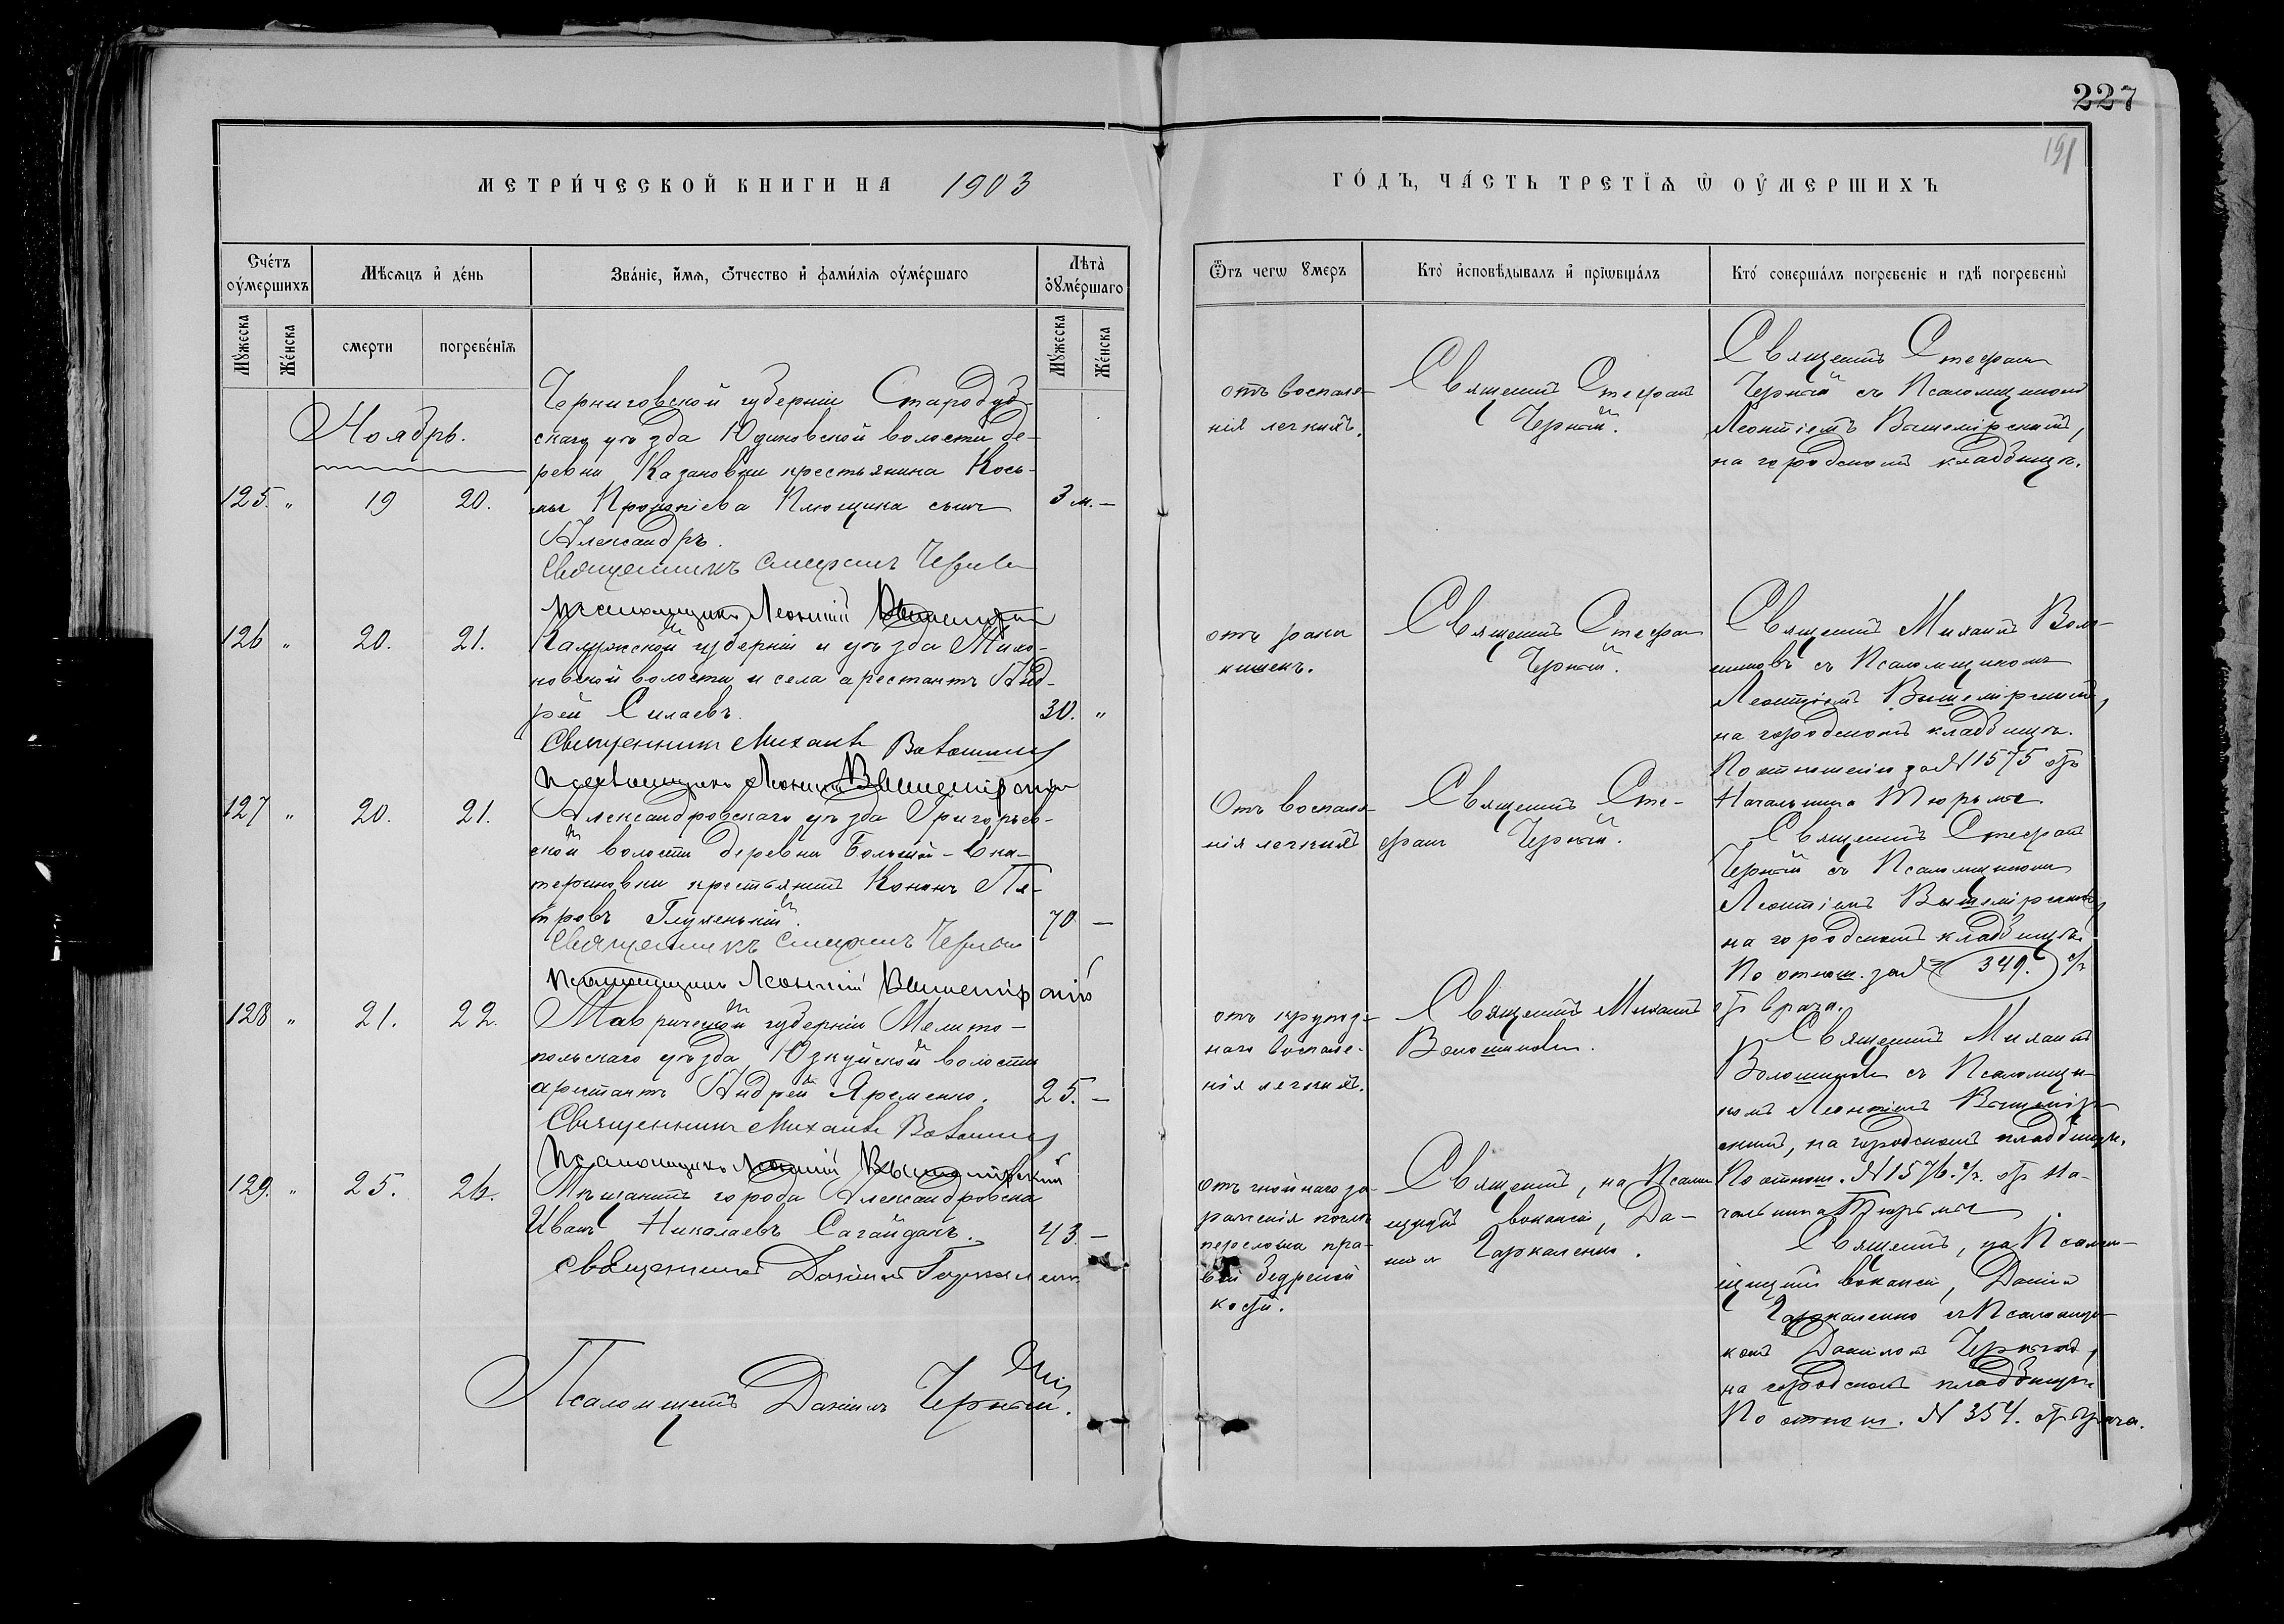 227
191
МЕТРИ́ЧЕСКОЙ КНИГИ НА 1903
ГО́ДЪ, ЧА́СТЬ ТРЕТІѦ Ѽ ОУ҆МЕРШИХЪ
Сче́тъ оу҆́мершихъ
Мѣсѧцъ и҆ де́нь
Зва́нїе, и҆́мѧ, ѻ҆́тчество и҆ фами́лїѧ оу҆ме́ршаго
Лѣта̀ оу҆ме́ршаго
Ѿ чегѡ оумеръ
Кто̀ и҆сповѣ́дывалъ и҆ прїѡбща́лъ
Кто́ соверша́лъ погребенїе и гдѣ погребены̀
Мꙋ́жеска
Же́нска
смерти
погребе́нїѧ
Мꙋ́жеска
Же́нска
Ноябрь.
Черниговской губерніи Стародуб-
скаго уѣзда Юдиновской волости де-
ревни Казановки крестьянина Кось-
125. " 19 20. мы Клющика сынъ 3 м. —
Александръ.
Священникъ Стефанъ Черный
Псаломщикъ Леонтій
отъ воспале-
нія легкихъ.
Священникъ Стефанъ
Черный.
Священникъ Стефанъ
Черный съ Псаломщикомъ
Леонтіемъ Вышемірскимъ,
на городскомъ кладбищѣ.
126 " 20. 21. Калужской губерніи и уѣзда
новской волости и села арестантъ Анд-
рей Силаевъ. 30. "
Священникъ Михаилъ Волошинов
Псаломщикъ Леонтій Вышемірскій
отъ рака
кишекъ.
Священникъ Стефанъ
Черный.
Священникъ Михаилъ Воло-
шиновъ съ Псаломщикомъ
Леонтіемъ Вышемірскимъ,
на городскомъ кладбищѣ.
По отношенію за № 1575 отъ
Начальника Тюрьмы.
127 " 20. 21. Александровскаго уѣзда Григорьев-
ской волости деревни Большой-Ека-
териновки крестьянинъ Кононъ Пе-
тровъ Глуженькій. 70 —
Священникъ Стефанъ Черный
Псаломщикъ Леонтій Вышемірскій
Отъ воспале-
нія легкихъ
Священникъ Сте-
фанъ Черный.
Священникъ Стефанъ
Черный съ Псаломщикомъ
Леонтіемъ Вышемірскимъ,
на городскомъ кладбищѣ.
По отнош. за № 349.
отъ врача.
128 " 21. 22. Таврической губерніи Мелито-
польскаго уѣзда, Юзкуйской волости
арестантъ Андрей Яременко. 25. —
Священникъ Михаилъ Волошинов
Псаломщикъ Леонтій Вышемірскій
отъ крупоз-
наго воспале-
нія легкихъ.
Священникъ Михаилъ
Волошиновъ.
Священникъ Михаилъ
Волошиновъ съ Псаломщи-
комъ Леонтіемъ Вышемір-
скимъ, на городскомъ кладбищѣ.
По отнош. № 1576. отъ На-
чальника Тюрьмы.
129. " 25. 26. Мѣщанинъ города Александровска
Иванъ Николаевъ Сагайдакъ. 43. —
Священникъ Даніилъ Гаркаленко
Псаломщикъ Даніилъ Черный.
отъ гнойнаго за-
раженія послѣ
перелома пра-
вой бедреной
кости.
Священникъ, на Псалом-
щицкой вакансіи, Да-
ніилъ Гаркаленко.
Священникъ, на Псалом-
щицкой вакансіи, Даніилъ
Гаркаленко съ Псаломщи-
комъ Даніиломъ Чернымъ,
на городскомъ кладбищѣ
По отнош. № 354. отъ врача.